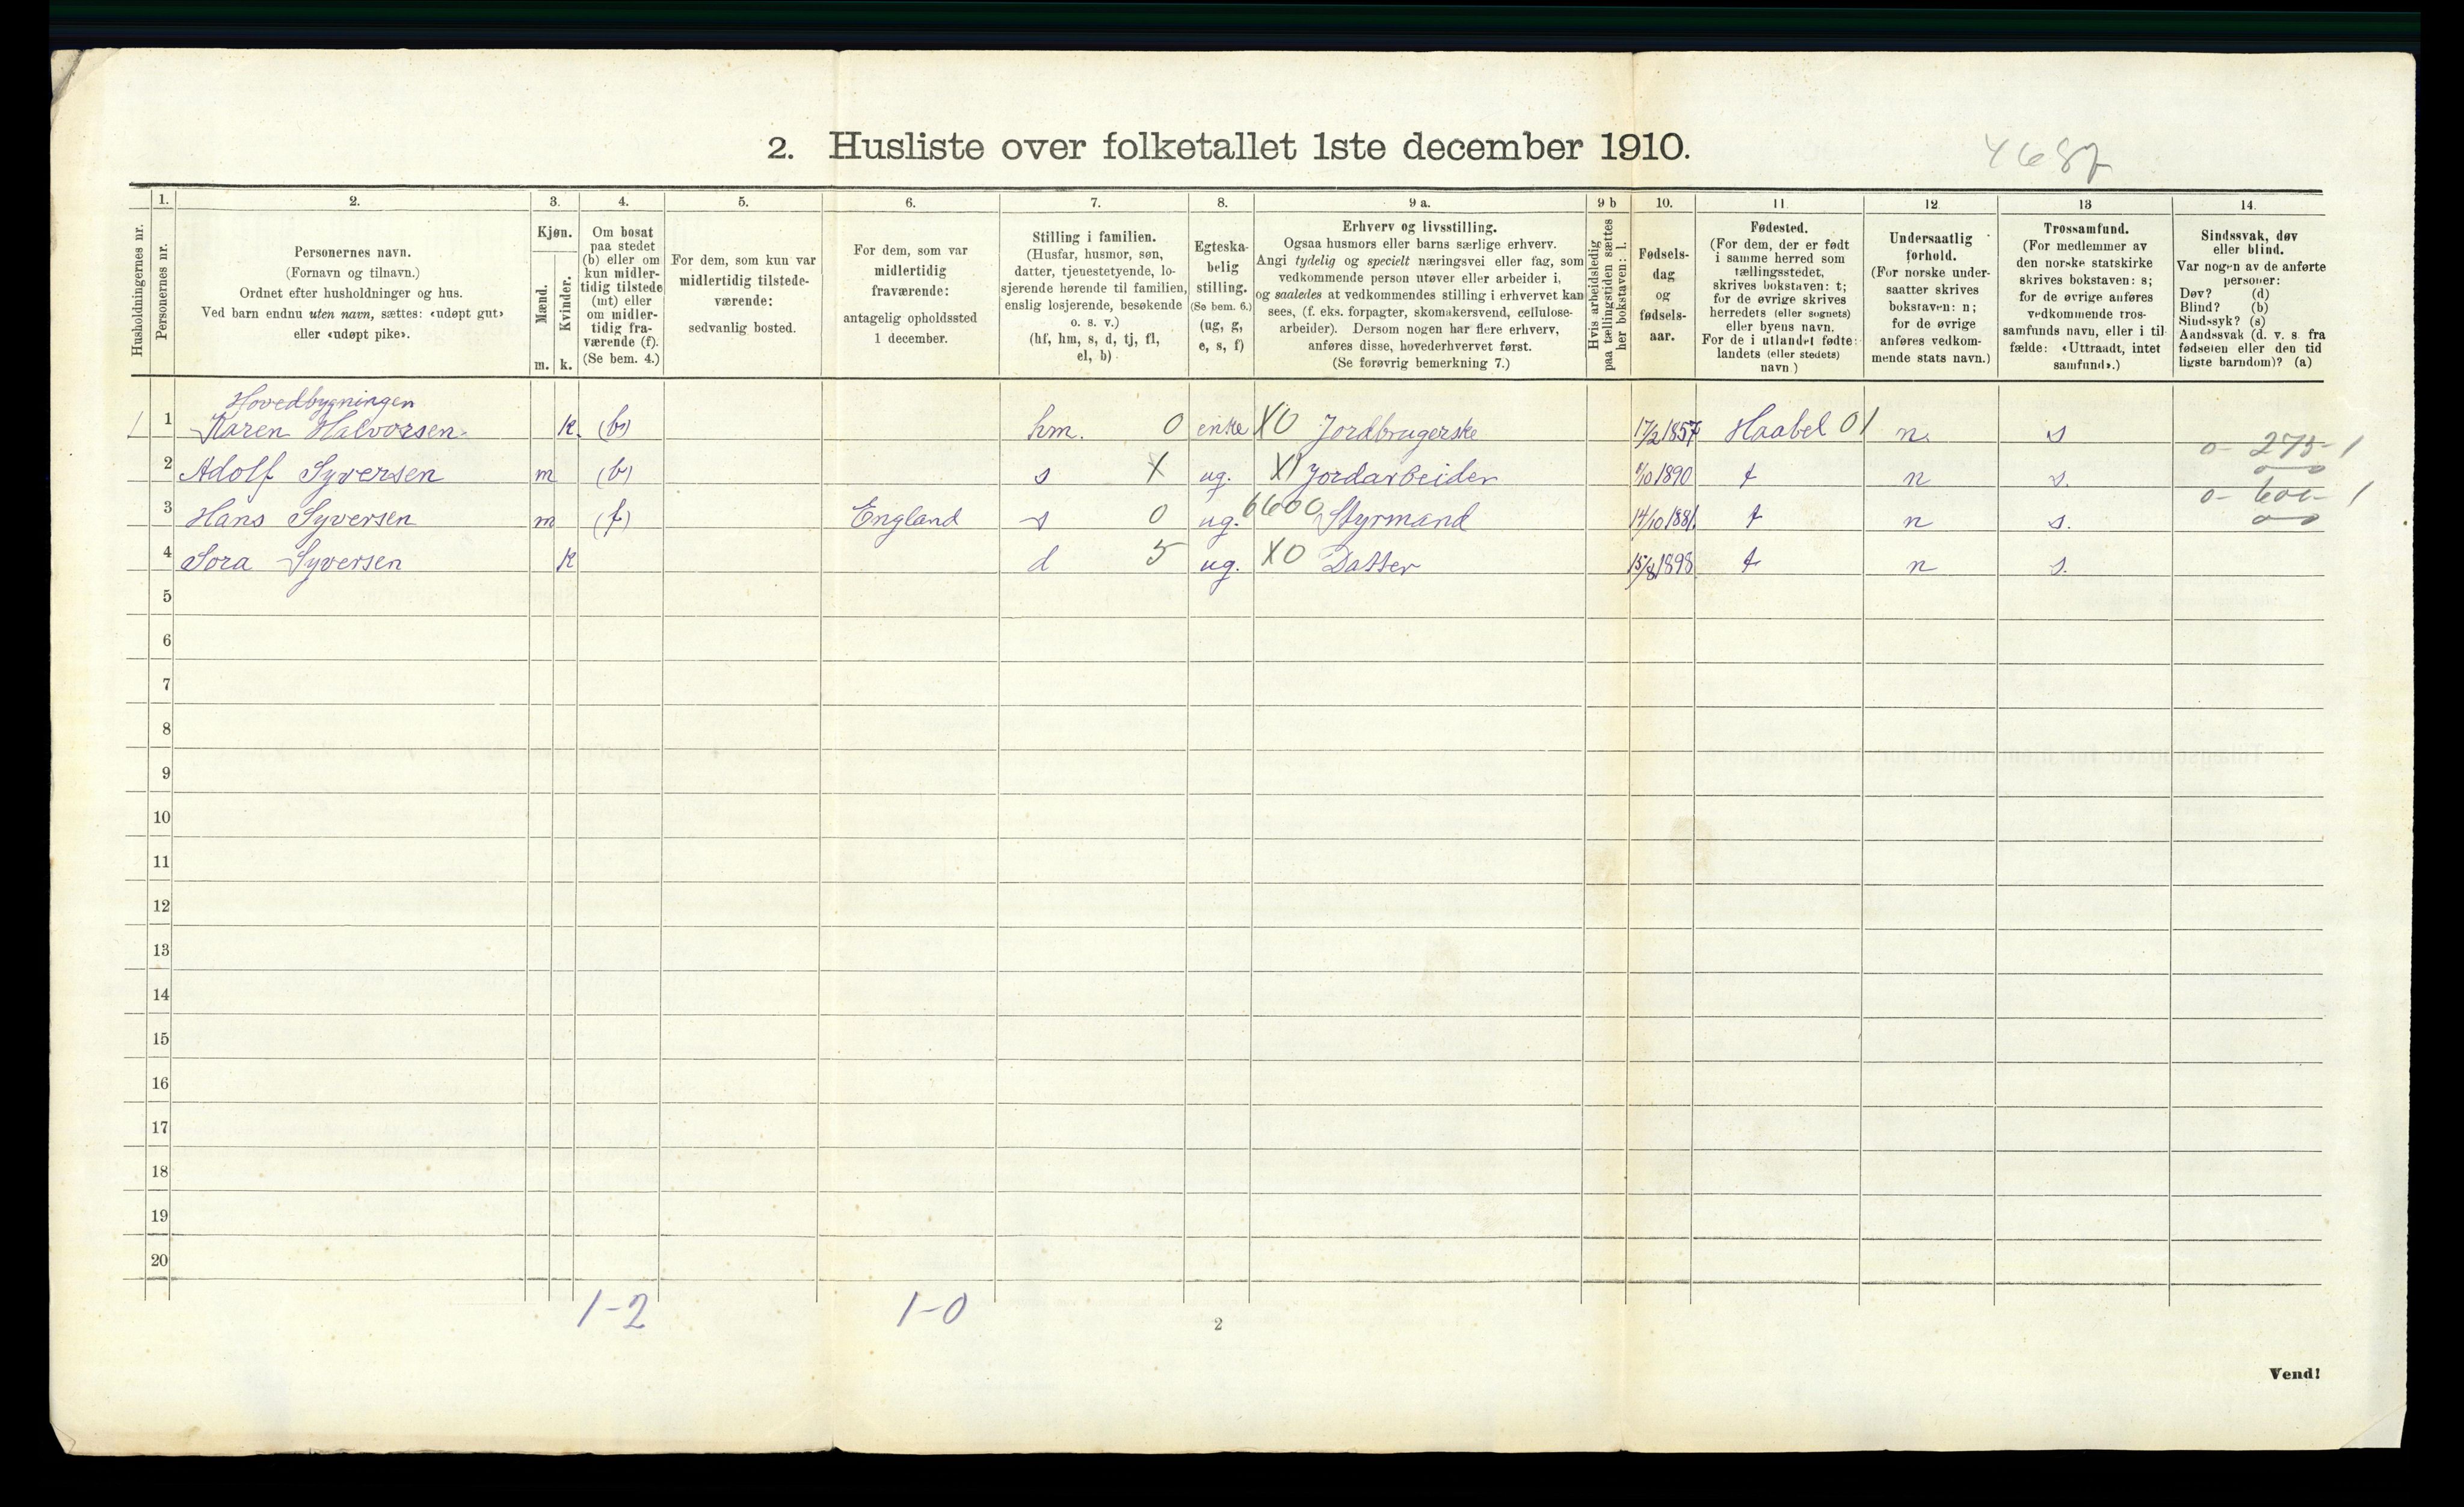 2. Husliste over folketallet 1ste december 1910.
4687
Husholdningernes nr.
1.
Personernes nr.
2.
Personernes navn.
(Fornavn og tilnavn.)
Ordnet efter husholdninger og hus.
Ved barn endnu uten navn, sættes: «udøpt gut»
eller «udøpt pike».
3.
Kjøn.
Mænd.
m.
Kvinder.
k.
4.
Om bosat
paa stedet
(b) eller om
kun midler-
tidig tilstede
(mt) eller
om midler-
tidig fra-
værende (f).
(Se bem. 4.)
5.
For dem, som kun var
midlertidig tilstede-
værende:
sedvanlig bosted.
6.
For dem, som var
midlertidig
fraværende:
antagelig opholdssted
1 december.
7.
Stilling i familien.
(Husfar, husmor, søn,
datter, tjenestetyende, lo-
sjerende hørende til familien,
enslig losjerende, besøkende
o. s. v.)
(hf, hm, s, d, tj, fl,
el, b)
8.
Egteska-
belig
stilling.
(Se bem. 6.)
(ug, g,
e, s, f)
9 a.
Erhverv og livsstilling.
Ogsaa husmors eller barns særlige erhverv.
Angi tydelig og specielt næringsvei eller fag, som
vedkommende person utøver eller arbeider i,
og saaledes at vedkommendes stilling i erhvervet kan
sees, (f. eks. forpagter, skomakersvend, cellulose-
arbeider). Dersom nogen har flere erhverv,
anføres disse, hovederhvervet først.
(Se forøvrig bemerkning 7.)
9 b
Hvis arbeidsledig
paa tællingstiden sættes
her bokstaven: l.
10.
Fødsels-
dag
og
fødsels-
aar.
11.
Fødested.
(For dem, der er født
i samme herred som
tællingsstedet,
skrives bokstaven: t;
for de øvrige skrives
herredets (eller sognets)
eller byens navn.
For de i utlandet fødte:
landets (eller stedets)
navn)
12.
Undersaatlig
forhold.
(For norske under-
saatter skrives
bokstaven: n;
for de øvrige
anføres vedkom-
mende stats navn.)
13
Trossamfund.
(For medlemmer av
den norske statskirke
skrives bokstaven: s;
for de øvrige anføres
vedkommende tros-
samfunds navn, eller i til
fælde: «Uttraadt, intet
samfund».)
14.
Sindssvak, døv
eller blind.
Var nogen av de anførte
personer:
Døv? (d)
Blind? (b)
Sindssyk? (s)
Aandssvak (d. v. s. fra
fødselen eller den tid
ligste barndom)? (a)
Hovedbygningen
1 1 Karen Halvorsen k. (b) hm. 0 enke X0 Jordbrugerske 17/2 1857 Haabel 01 n. s
0-275-1
2 Adolf Syversen m (b) s X ug. X1 Jordarbeider /10 1890 t n s.
0-600-1
3 Hans Syversen m (f) England s 0 ug. 6600 Styrmand 14/10 1881. t n s.
4 Sora Syversen k d 5 ug. X0 Datter 15/8 1898 t n s.
5
6
7
8
9
10
11
12
13
14
15
16
17
18
19
20
1-2 1-0
2
Vend!